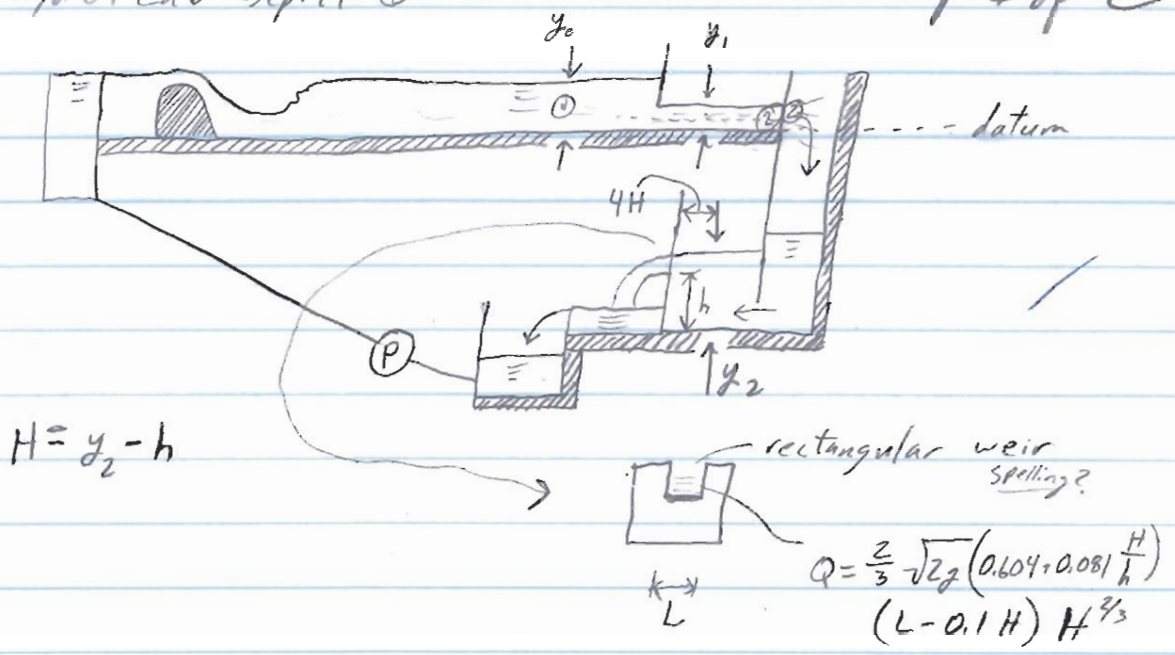 y₀
y₁
①
②
②
datum
4H
h
P
y₂
H = y₂ - h
rectangular weir
spelling?
Q = 2/3 √2g (0.604+0.081 H/h)
(L - 0.1 H) H^2/3
L